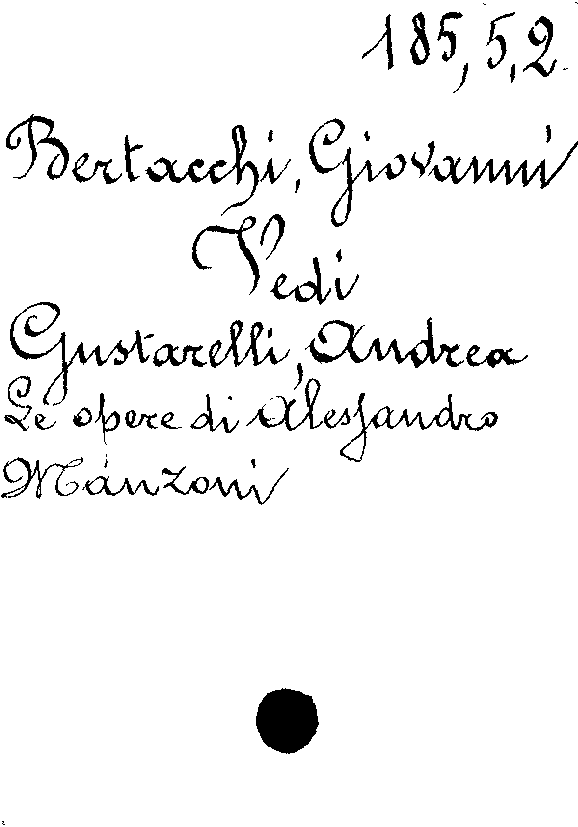 185,5,2.
Bertacchi, Giovanni
Vedi
Gustarelli, Andrea
Le opere di Alessandro
Manzoni